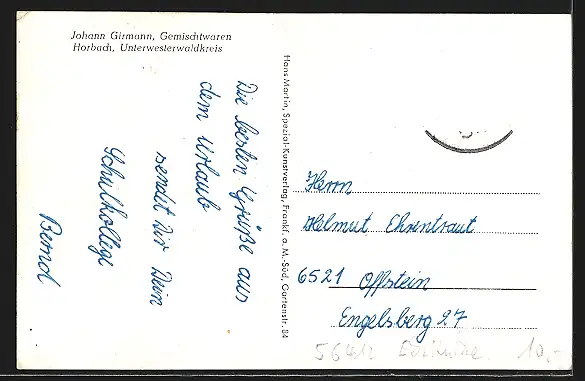 Johann Girmann, Gemischtwaren
Horbach, Unterwesterwaldkreis
Die besten Grüße aus
dem Urlaub
sendet Dir Dein
Schulkollege
Bernd
Hans Martin, Spezial-Kunstverlag, Frankf. a. M.-Süd, Gartenstr. 84
Herrn
Helmut Ehrentraut
6521 Offstein
Engelsberg 27
56412
10,-